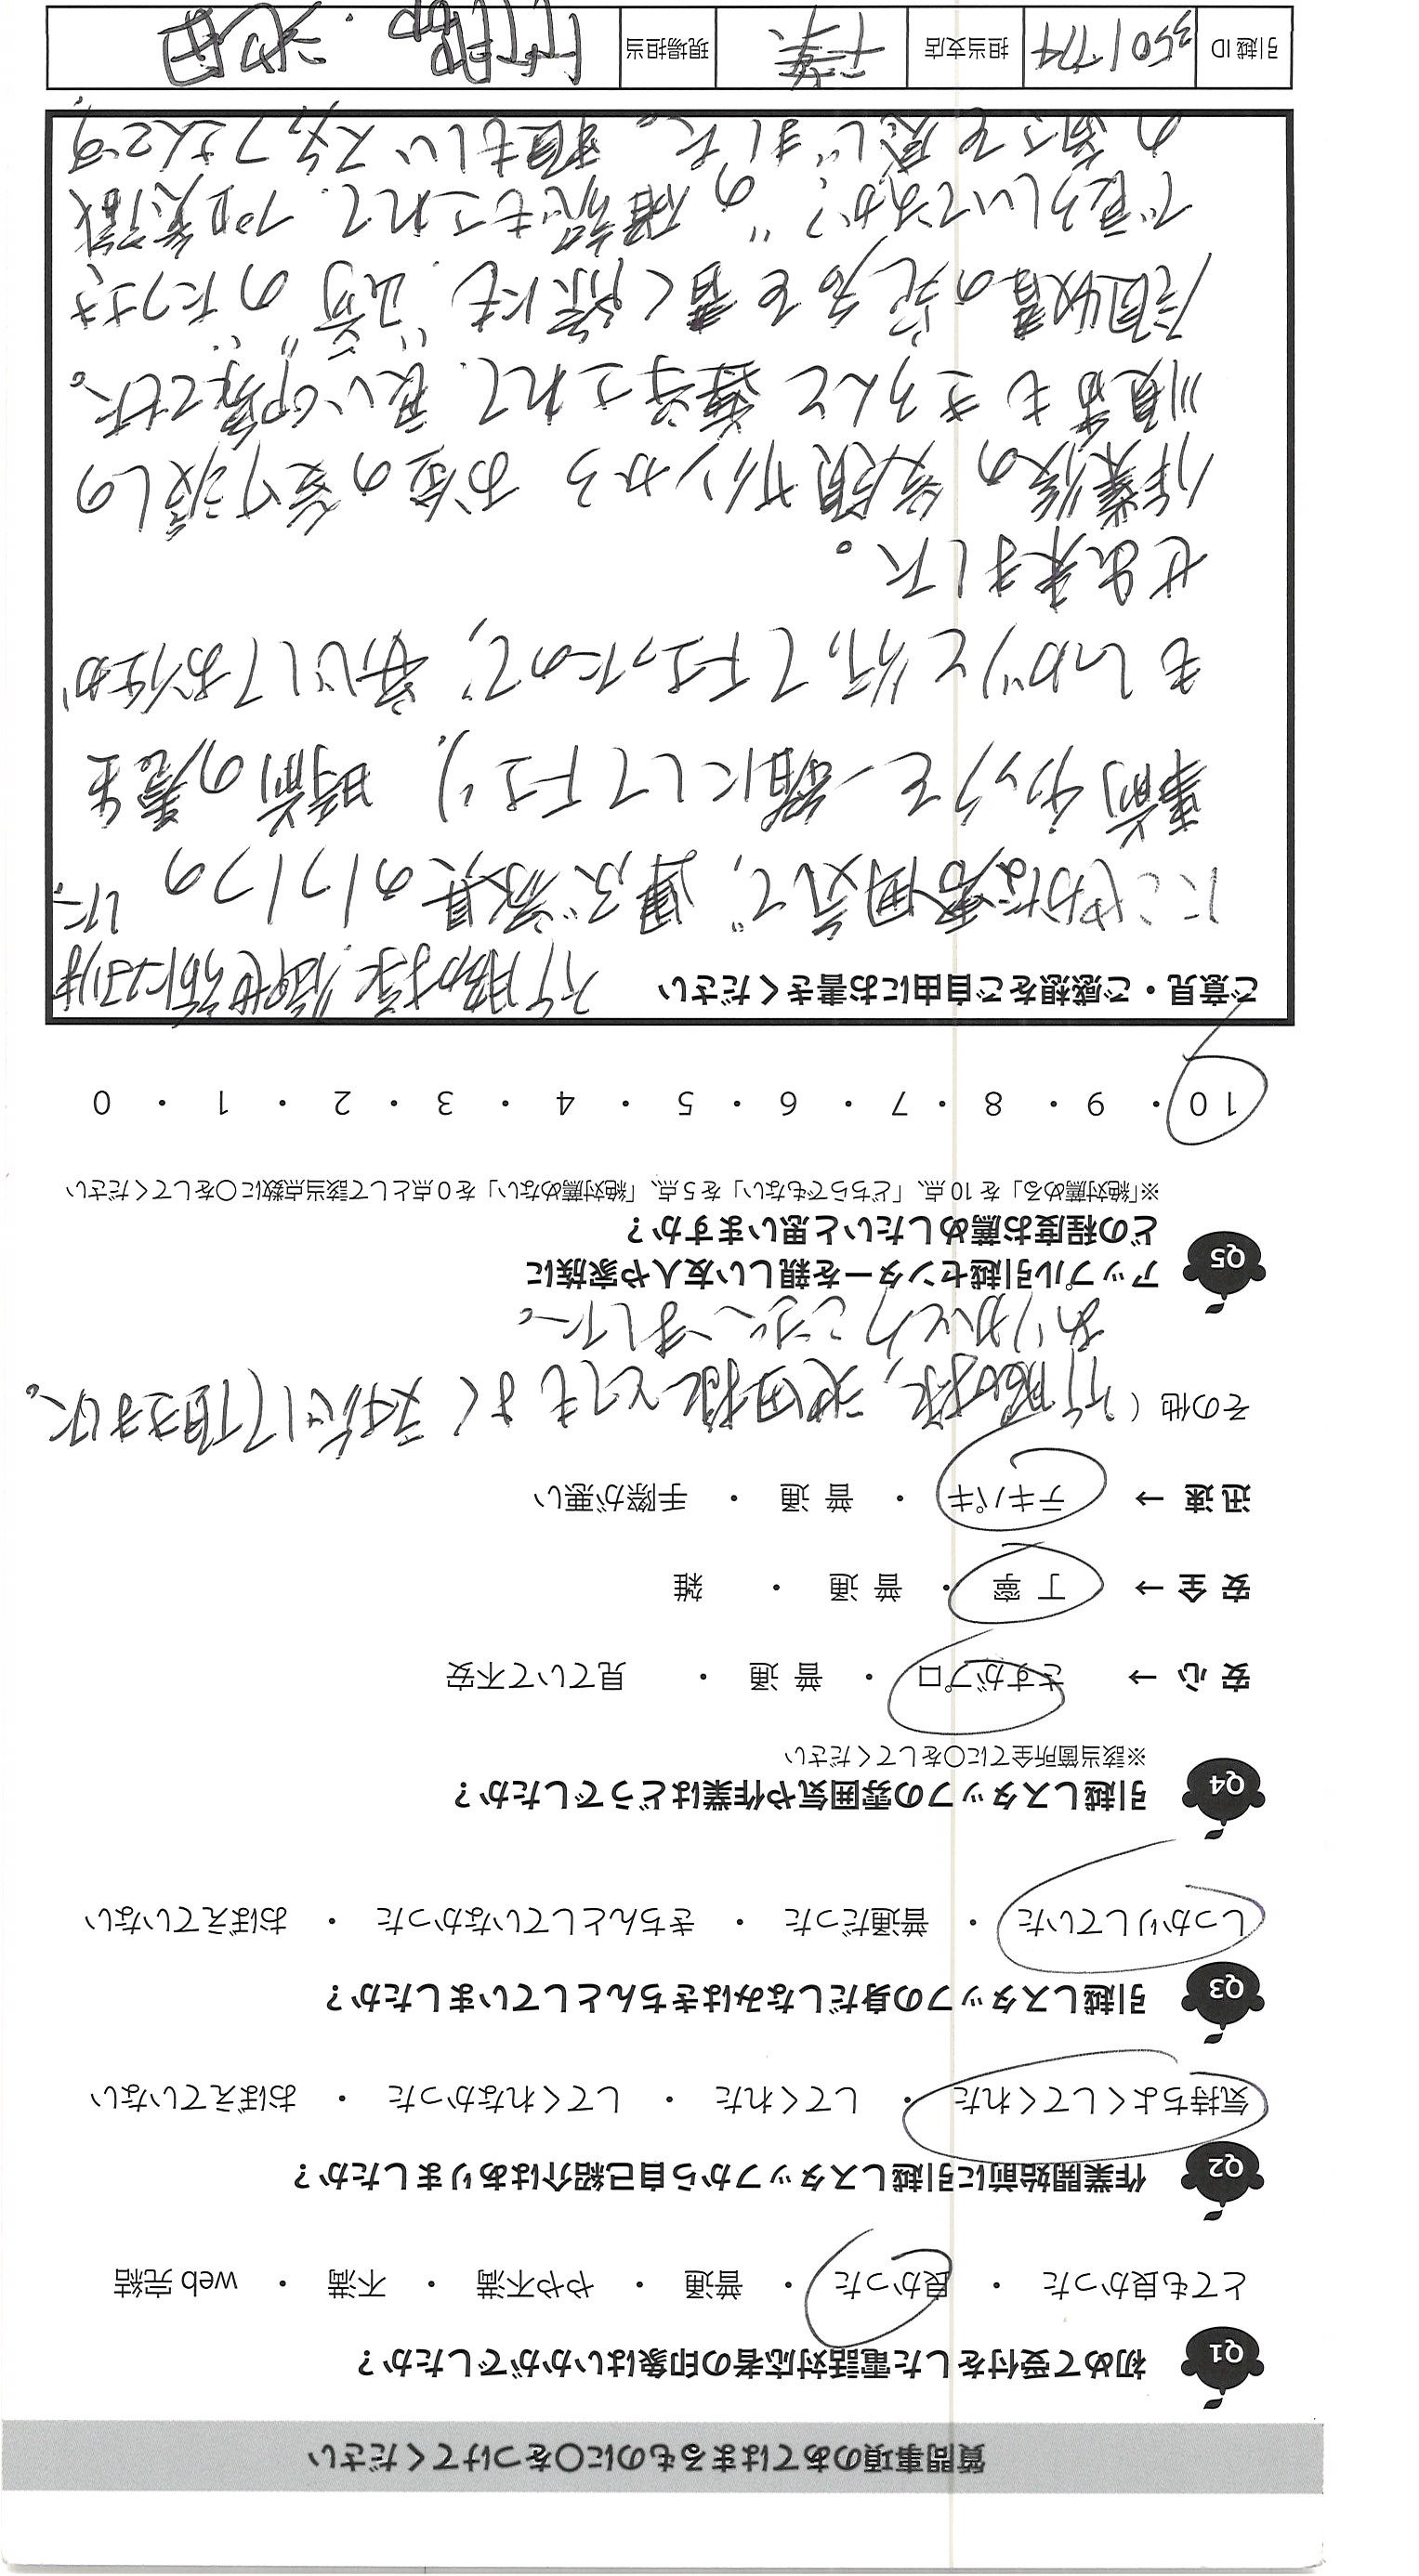 質問事項のあてはまるものに○をつけてください
Q1 初めて受付をした電話対応者の印象はいかがでしたか？
とても良かった ・ 良かった ・ 普通 ・ やや不満 ・ 不満 ・ web 完結
Q2 作業開始前に引越しスタッフから自己紹介はありましたか？
気持ちよくしてくれた ・ してくれた ・ してくれなかった ・ おぼえていない
Q3 引越しスタッフの身だしなみはきちんとしていましたか？
しっかりしていた ・ 普通だった ・ きちんとしていなかった ・ おぼえていない
Q4 引越しスタッフの雰囲気や作業はどうでしたか？
※該当箇所全てに○をしてください
安心 → さすがプロ ・ 普通 ・ 見ていて不安
安全 → 丁寧 ・ 普通 ・ 雑
迅速 → テキパキ ・ 普通 ・ 手際が悪い
その他（ 様、池田様とてもよく対応して頂きました。
ありがとうございました。
Q5 アップル引越センターを親しい友人や家族に
どの程度お薦めしたいと思いますか？
※「絶対薦める」を 10 点、「どちらでもない」を 5 点、「絶対薦めない」を 0 点として該当点数に○をしてください
10 ・ 9 ・ 8 ・ 7 ・ 6 ・ 5 ・ 4 ・ 3 ・ 2 ・ 1 ・ 0
ご意見・ご感想をご自由にお書きください
様、御世話になりました。
にこやかな雰囲気で、運ぶ家具の1つ1つの
事前チェックを一緒にして下さり、時前の養生
もしっかりと行って下さったので、安心してお任か
せ出来ました。
作業後の笑顔サインから お金の受け渡しの
順番もきちんと されて、良い印象でした。
領収書の宛名を書く際にも、"崎" のたつさき
で宜ろしいですか？" の確認もされて、プロ意識
の高さを感じました。頼もしいスタッフさんです。
引越 ID 3501774 担当支店 千葉 現場担当 ・池田